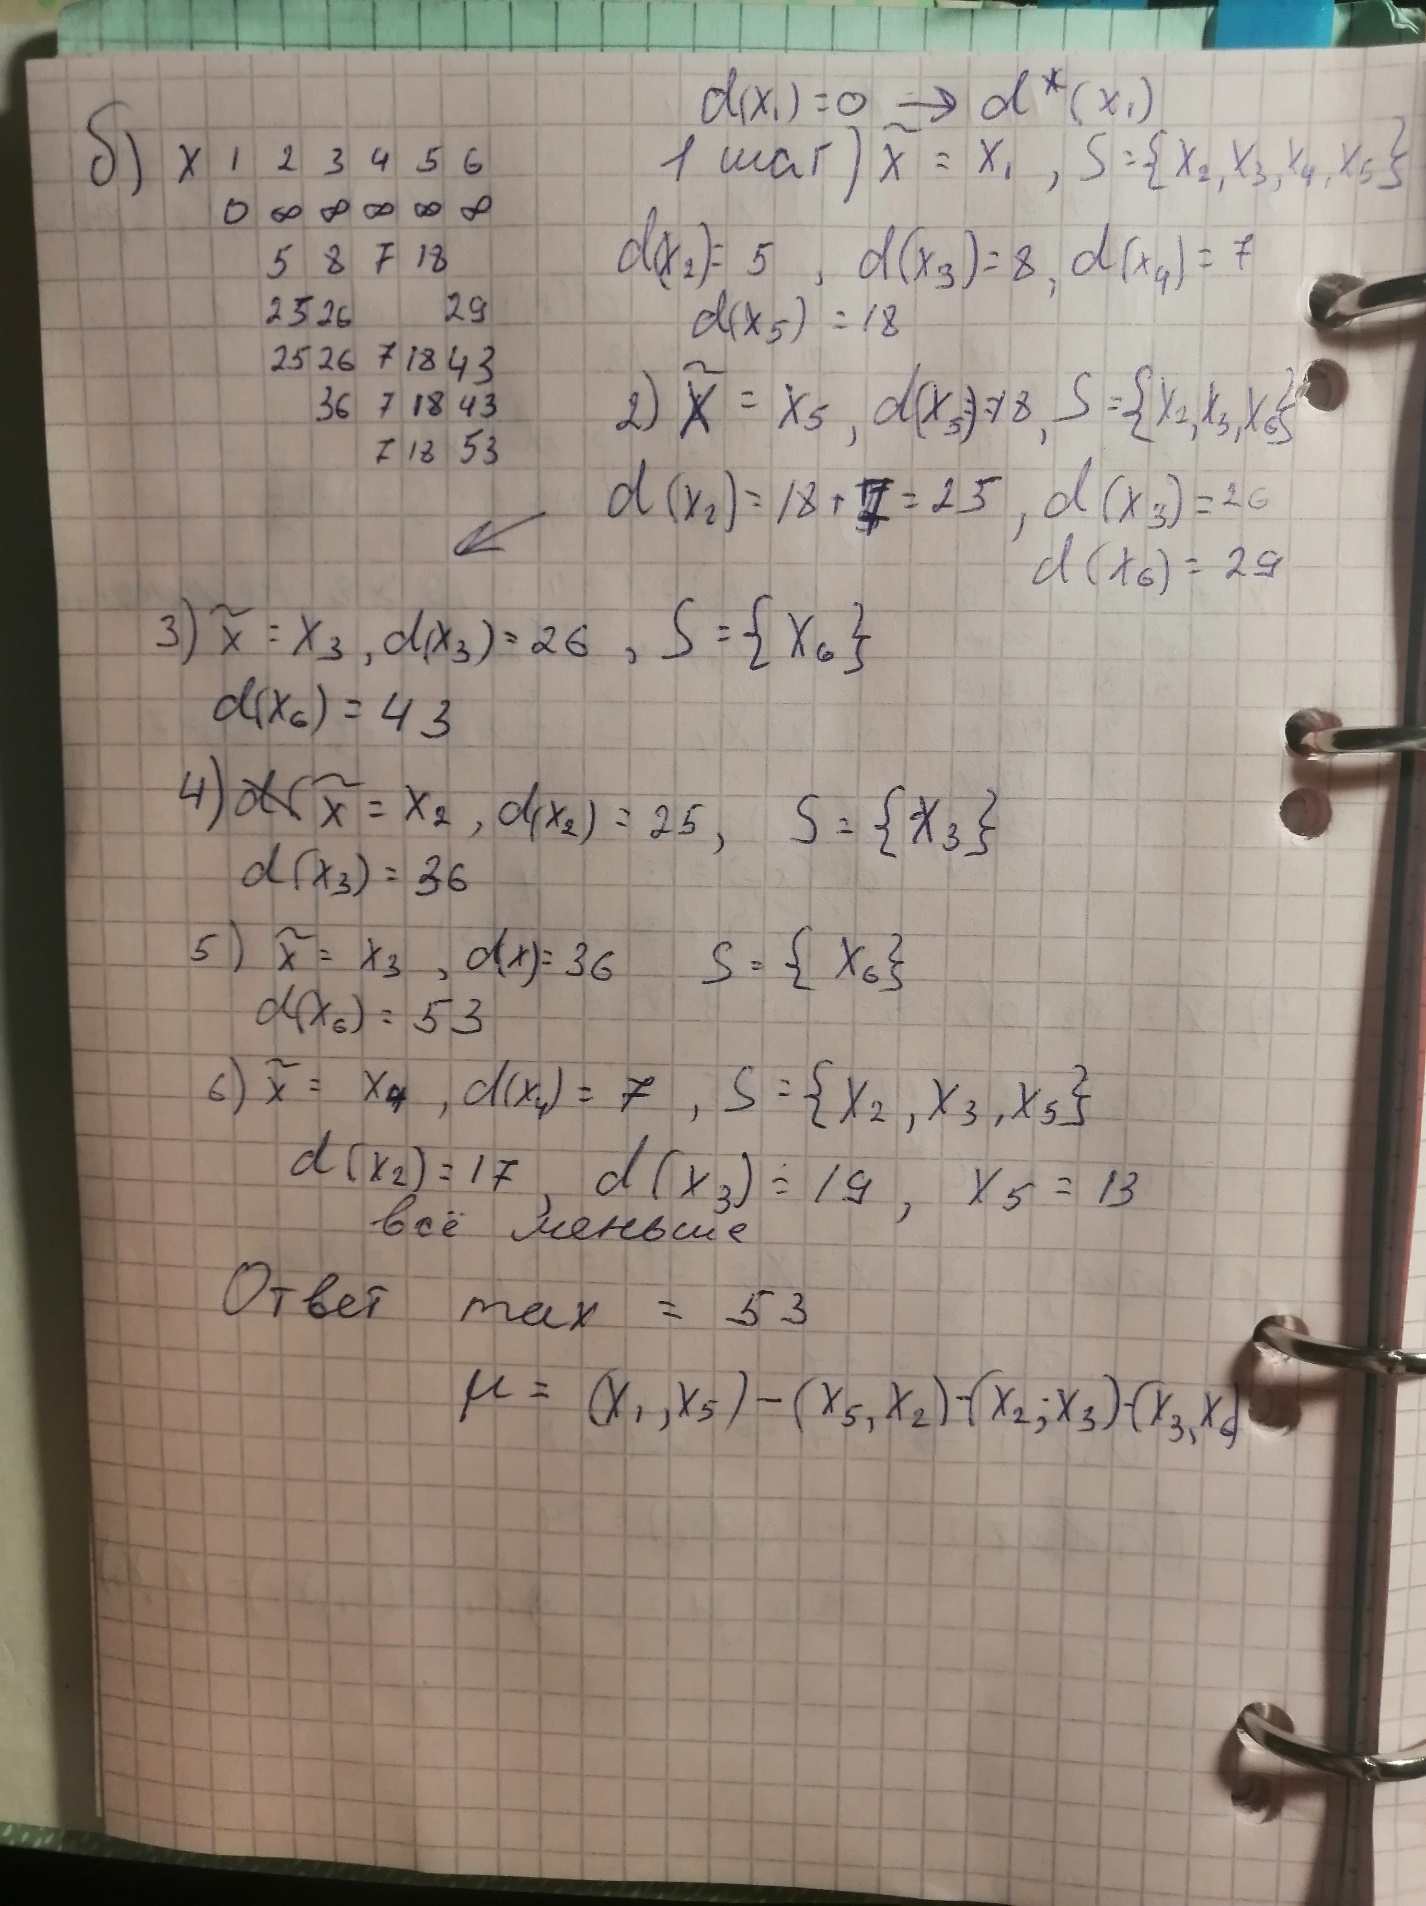 d(x₁) = 0 → d*(x₁)
б) X 1 2 3 4 5 6
0 ∞ ∞ ∞ ∞ ∞
5 8 7 18
25 26 29
25 26 7 18 43
36 7 18 43
7 18 53
1 шаг) x̃ = x₁, S = {x₂, x₃, x₄, x₅}
d(x₂) = 5, d(x₃) = 8, d(x₄) = 7
d(x₅) = 18
2) x̃ = x₅, d(x₅) = 18, S = {x₂, x₃, x₆}
d(x₂) = 18 + 7 = 25, d(x₃) = 26
d(x₆) = 29
3) x̃ = x₃, d(x₃) = 26, S = {x₆}
d(x₆) = 43
4) x̃ = x₂, d(x₂) = 25, S = {x₃}
d(x₃) = 36
5) x̃ = x₃, d(x) = 36 S = {x₆}
d(x₆) = 53
6) x̃ = x₄, d(x₄) = 7, S = {x₂, x₃, x₅}
d(x₂) = 17, d(x₃) = 19, x₅ = 13
всё меньше
Ответ max = 53
μ = (x₁, x₅) - (x₅, x₂) - (x₂; x₃) - (x₃, x₆)